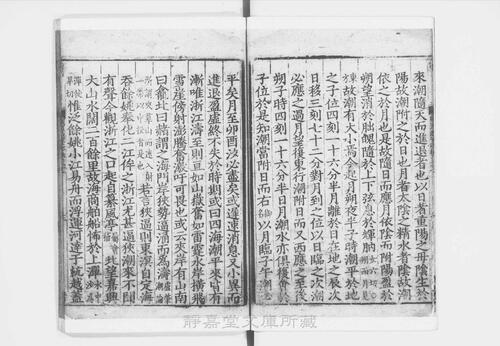 來潮隨天而進退者也以日者重陽之母陰生於
陽故潮附之於日也月者太陰之精水者陰故潮
依之於月也是故隨日而應月依陰而附陽盈於
朔望消於朏魄隨於上下弦息於輝朒女六切朔而月見
東故潮有大小焉今起月朔夜半子時潮平於地
之子位四刻一十六分半月離於日在地之辰次
日移三刻七十二分對月到之位以日臨之次潮
必應之過月望復東行潮附日而又西應之至後
朔子時四刻一十六分半日月潮水亦俱復會於
子位於是知潮當附日而右以月臨子午潮必
平矣月至卯酉汐必盡矣或遲速消息又小異而
進退盈虛終不失於時期或曰四海潮平來皆有
漸唯浙江濤至則亘如山嶽奮如雷霆水岸橫飛
雪崖傍射澎騰奔激吁可畏也或云夾岸有山南
曰龕北曰赭謂之海門岸狹勢逼湧而為濤
若言狹逼則東溟自定海
吞餘姚奉化二江侔之浙江尤甚逼狹潮來不聞
有聲今觀浙江之口起自纂風亭北望嘉興
大山水闊二百餘里故海商舶船怖於上潬
惟泛餘姚小江易舟而浮運河達于杭越蓋
靜嘉堂文庫所藏